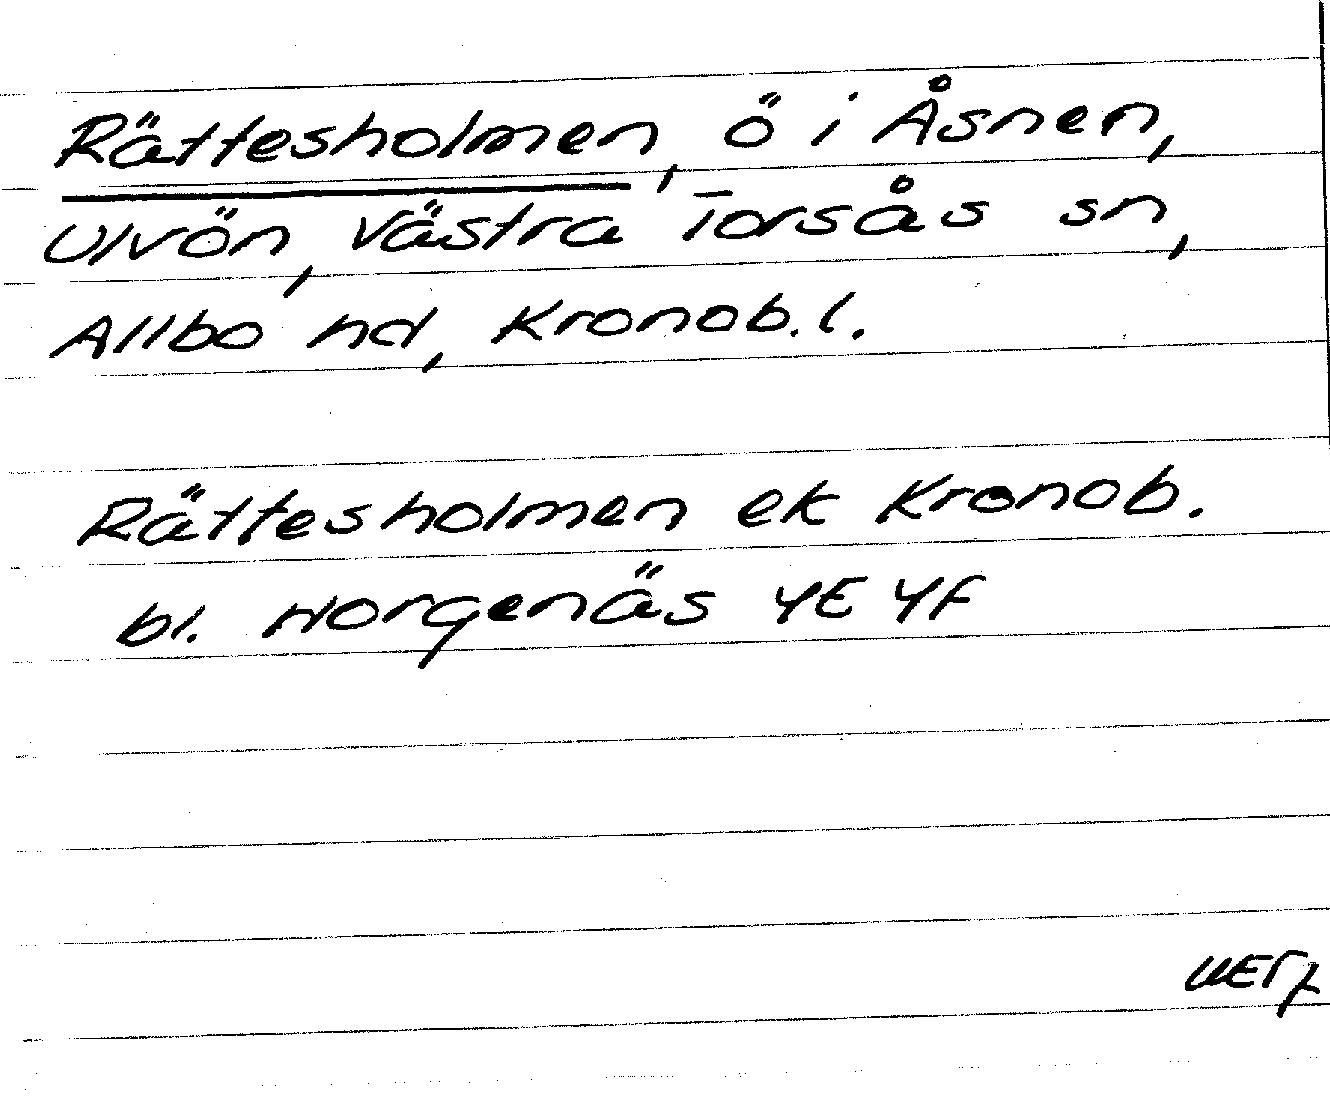 Rättesholmen, ö i Åsnen,
Ulvön, Västra Torsås sn,
Allbo hd, Kronob. l.
Rättesholmen ek Kronob.
bl. Norgenäs 4E 4F